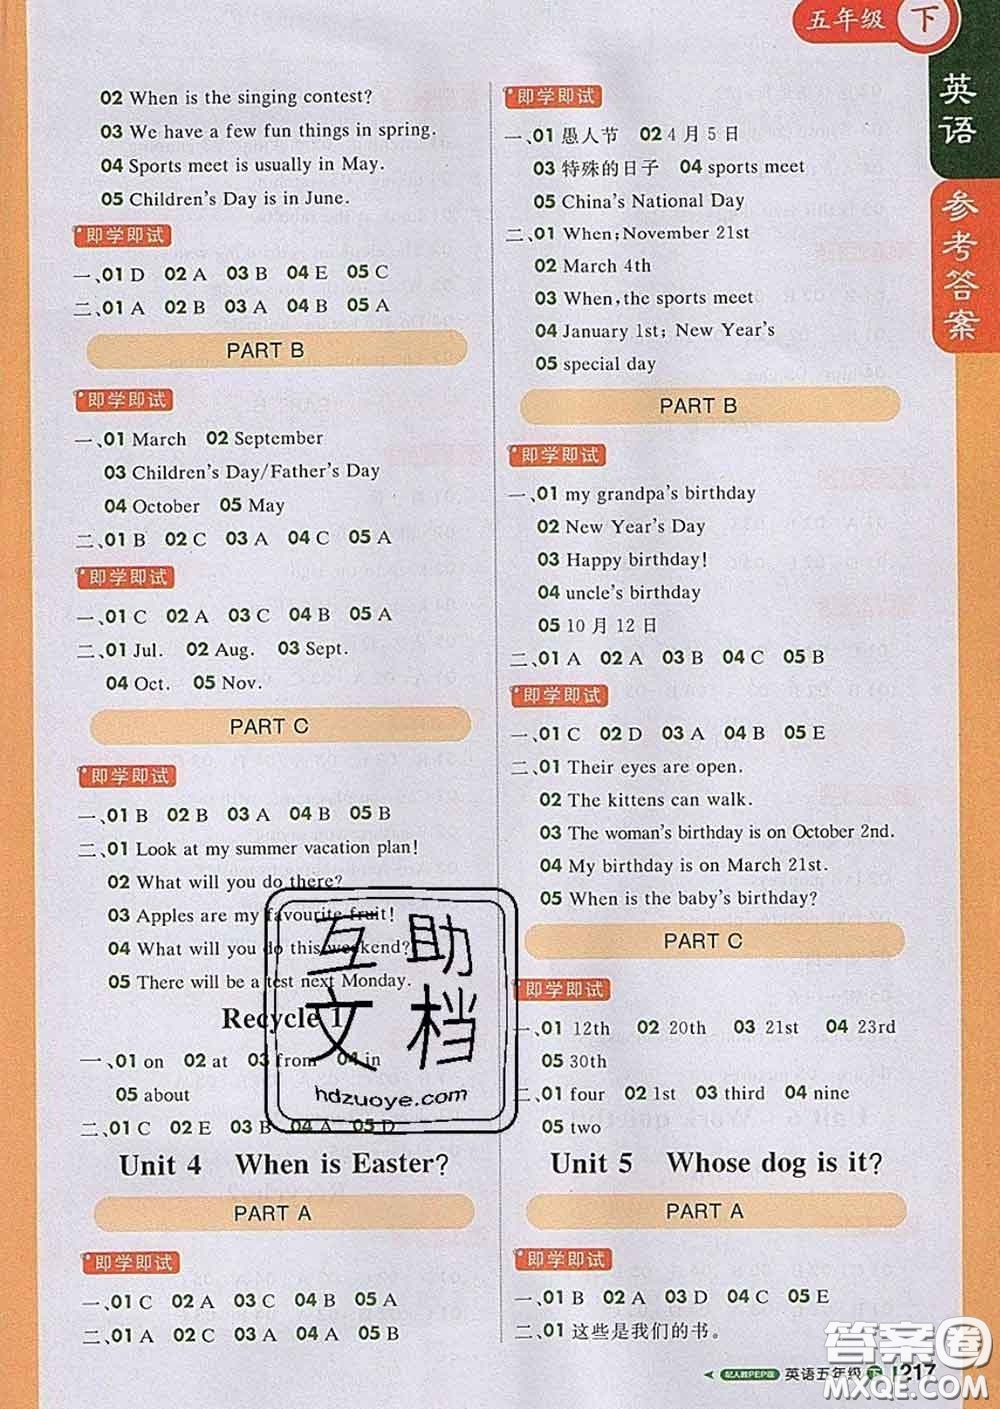 五年级 下
英语
参考答案
02 When is the singing contest?
03 We have a few fun things in spring.
04 Sports meet is usually in May.
05 Children's Day is in June.
即学即试
一、01 D 02 A 03 B 04 E 05 C
二、01 A 02 B 03 A 04 B 05 A
PART B
即学即试
一、01 March 02 September
03 Children's Day/Father's Day
04 October 05 May
二、01 B 02 C 03 A 04 C 05 A
即学即试
一、01 C 02 A 03 C 04 B 05 A
二、01 Jul. 02 Aug. 03 Sept.
04 Oct. 05 Nov.
PART C
即学即试
一、01 B 02 B 03 A 04 B 05 B
二、01 Look at my summer vacation plan!
02 What will you do there?
03 Apples are my favourite fruit!
04 What will you do this weekend?
05 There will be a test next Monday.
Recycle 1
一、01 on 02 at 03 from 04 in
05 about
二、01 C 02 E 03 B 04 A 05 D
Unit 4 When is Easter?
PART A
即学即试
一、01 C 02 A 03 C 04 C 05 A
二、01 A 02 C 03 C 04 A 05 B
即学即试
一、01 愚人节 02 4月5日
03 特殊的日子 04 sports meet
05 China's National Day
二、01 When; November 21st
02 March 4th
03 When, the sports meet
04 January 1st; New Year's
05 special day
PART B
即学即试
一、01 my grandpa's birthday
02 New Year's Day
03 Happy birthday!
04 uncle's birthday
05 10月12日
二、01 A 02 A 03 B 04 C 05 B
即学即试
一、01 C 02 D 03 A 04 B 05 E
二、01 Their eyes are open.
02 The kittens can walk.
03 The woman's birthday is on October 2nd.
04 My birthday is on March 21st.
05 When is the baby's birthday?
PART C
即学即试
一、01 12th 02 20th 03 21st 04 23rd
05 30th
二、01 four 02 1st 03 third 04 nine
05 two
Unit 5 Whose dog is it?
PART A
即学即试
一、01 B 02 A 03 D 04 C 05 E
二、01 这些是我们的书。
配人教PEP版 英语五年级 下 217
互助文档
hdzuoye.com
答案圈
MXQE.COM